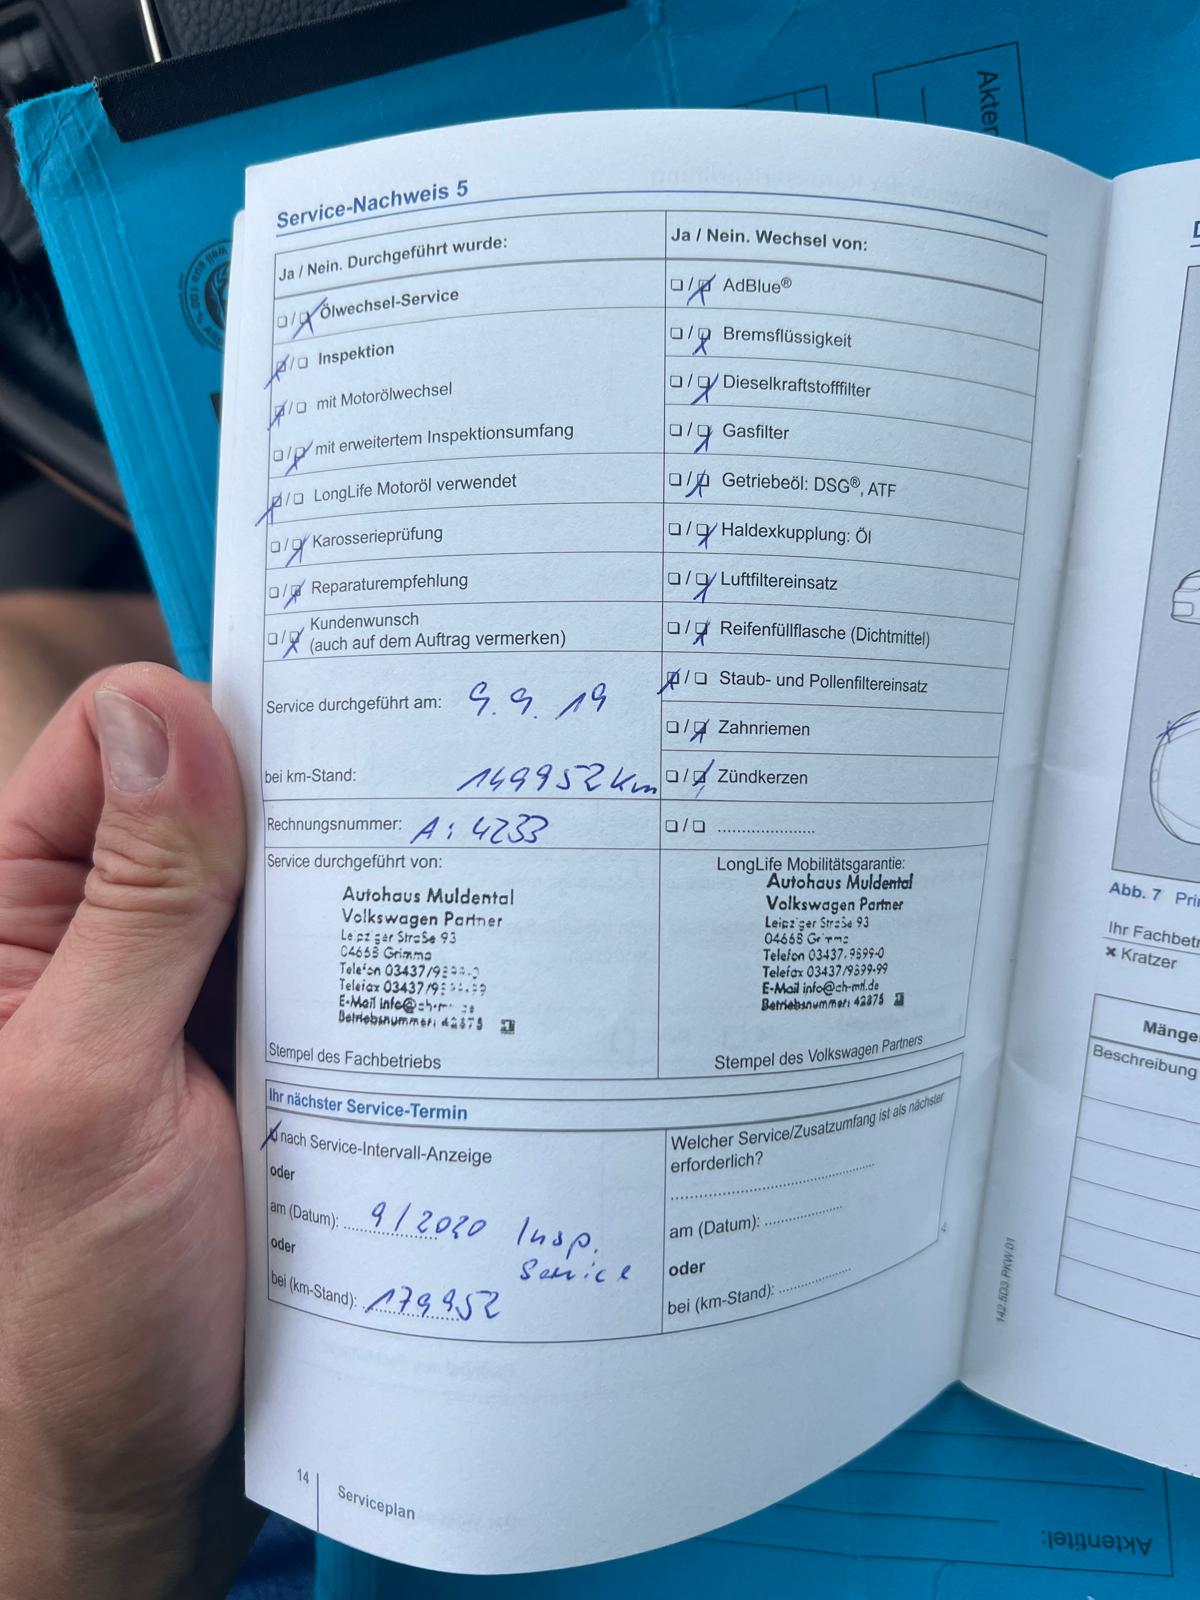 Service-Nachweis 5
Ja / Nein. Durchgeführt wurde:
☐/☒ Ölwechsel-Service
☒/☐ Inspektion
☒/☐ mit Motorölwechsel
☐/☒ mit erweitertem Inspektionsumfang
☒/☐ LongLife Motoröl verwendet
☐/☒ Karosserieprüfung
☐/☒ Reparaturempfehlung
☐/☒ Kundenwunsch
(auch auf dem Auftrag vermerken)
Service durchgeführt am: 9.9.19
bei km-Stand: 149952 km
Rechnungsnummer: A: 4233
Service durchgeführt von:
Autohaus Muldental
Volkswagen Partner
Leipziger Straße 93
04668 Grimma
Telefon 03437/
Telefax 03437/
E-Mail info@
Betriebsnummer: 42875
Stempel des Fachbetriebs
Ja / Nein. Wechsel von:
☐/☒ AdBlue®
☐/☒ Bremsflüssigkeit
☐/☒ Dieselkraftstofffilter
☐/☒ Gasfilter
☐/☒ Getriebeöl: DSG®, ATF
☐/☒ Haldexkupplung: Öl
☐/☒ Luftfiltereinsatz
☐/☒ Reifenfüllflasche (Dichtmittel)
☒/☐ Staub- und Pollenfiltereinsatz
☐/☒ Zahnriemen
☐/☒ Zündkerzen
☐/☐ .....................
LongLife Mobilitätsgarantie:
Autohaus Muldental
Volkswagen Partner
Leipziger Straße 93
04668 Grimma
Telefon 03437/9899-0
Telefax 03437/9899-99
E-Mail info@ah-mtl.de
Betriebsnummer: 42875
Stempel des Volkswagen Partners
Ihr nächster Service-Termin
☒ nach Service-Intervall-Anzeige
oder
am (Datum): 9/2020 Insp.
Service
oder
bei (km-Stand): 179952
Welcher Service/Zusatzumfang ist als nächster
erforderlich?
am (Datum): ................
oder
bei (km-Stand): ...............
142.5D3.PKW.01
14
Serviceplan
Abb. 7
Ihr
× Kratzer
Beschreibung
Aktentitel: